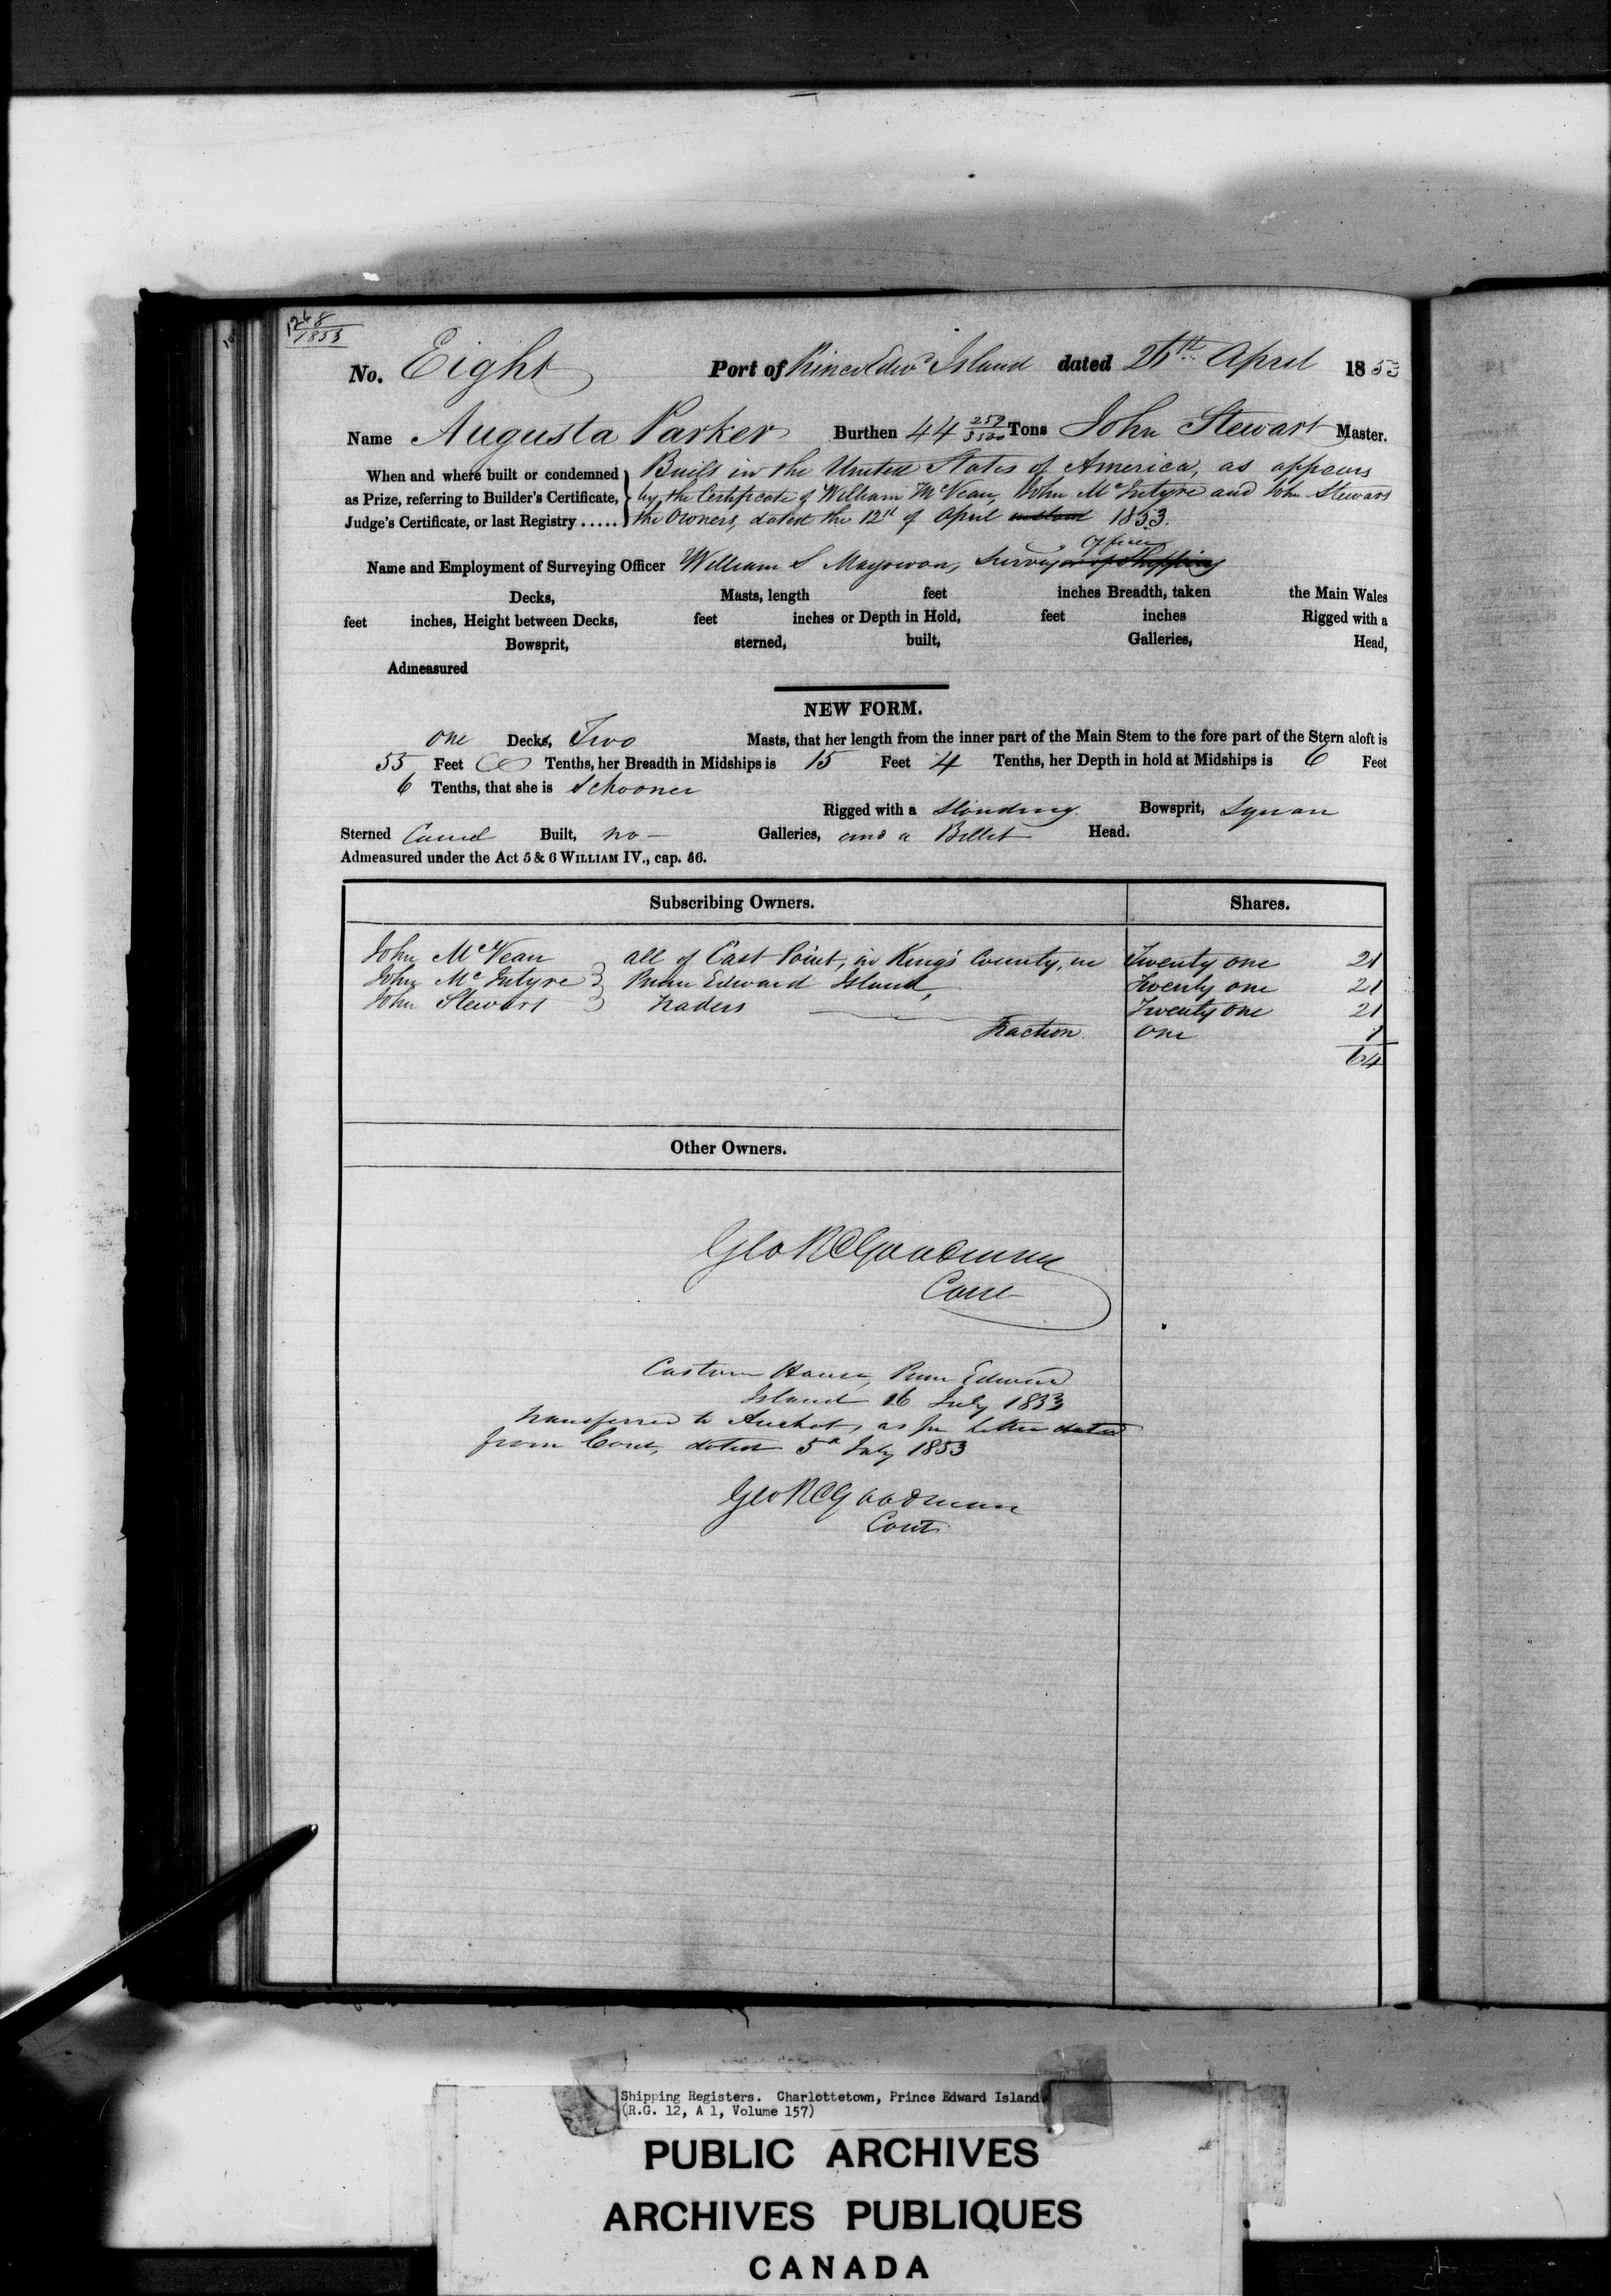 1268
1853
No. Eight Port of Prince Edwd Island dated 26th April 1853
Name Augusta Parker Burthen 44 259/3500 Tons John Stewart Master.
When and where built or condemned as Prize, referring to Builder's Certificate, Judge's Certificate, or last Registry .....
Built in the United States of America, as appears
by the Certificate of William McVean, John McIntyre and John Stewart
the Owners, dated the 12th of April 1853.
Name and Employment of Surveying Officer William S Magowan, Surveying Officer
Decks, Masts, length feet inches Breadth, taken the Main Wales
feet inches, Height between Decks, feet inches or Depth in Hold, feet inches Rigged with a
Bowsprit, sterned, built, Galleries, Head,
Admeasured
NEW FORM.
one Decks, Two Masts, that her length from the inner part of the Main Stem to the fore part of the Stern aloft is
55 Feet Tenths, her Breadth in Midships is 15 Feet 4 Tenths, her Depth in hold at Midships is 6 Feet
6 Tenths, that she is Schooner
Rigged with a Standing Bowsprit, Square
Sterned Carvel Built, no Galleries, and a Billet Head.
Admeasured under the Act 5 & 6 WILLIAM IV., cap. 56.
Subscribing Owners. Shares.
John McVean all of East Point, in King's County, in Twenty one 21
John McIntyre Prince Edward Island, Twenty one 21
John Stewart Traders Twenty one 21
Fraction one 1
64
Other Owners.
Geo R Goodman
Custom House, Prince Edward
Island 16 July 1853
Transferred to Arichat, as per letter dated
from Cont, dated 5th July 1853
Geo R Goodman
Cont
Shipping Registers. Charlottetown, Prince Edward Island
(R.G. 12, A 1, Volume 157)
PUBLIC ARCHIVES
ARCHIVES PUBLIQUES
CANADA